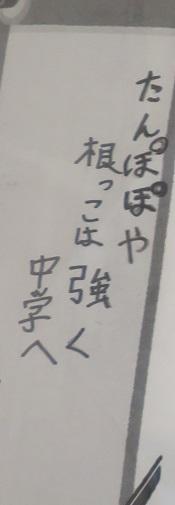 たんぽぽや
根っこは強く
中学へ